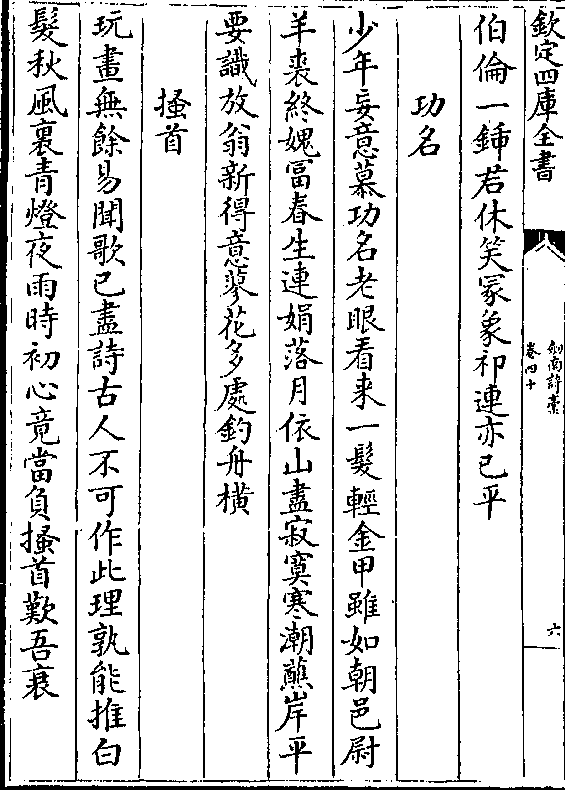 欽定四庫全書
劍南詩稾
卷四十
六
伯倫一鍤君休笑冡象祁連亦已平
功名
少年妄意慕功名老眼看来一髮輕金甲雖如朝邑尉
羊裘終媿富春生連娟落月依山盡寂寞寒潮蘸岸平
要識放翁新得意蓼花多處釣舟橫
搔首
玩畫無餘易聞歌已盡詩古人不可作此理孰能推白
髮秋風裏青燈夜雨時初心竟當負搔首歎吾衰